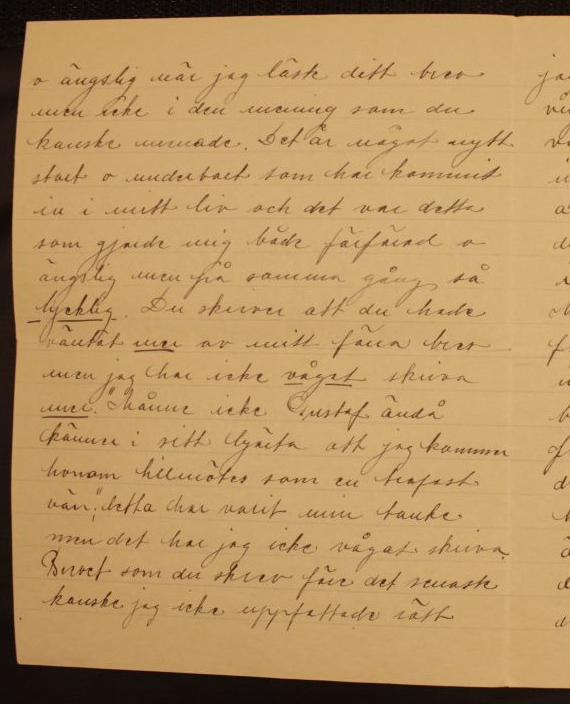 o ängslig när jag läste ditt brev
men icke i den mening som du
kanske menade. Det är något nytt
stort o underbart som har kommit
in i mitt liv och det var detta
som gjorde mig både förfärad o
ängslig men på samma gång så
lycklig. Du skriver att du hade
väntat mer av mitt förra brev
men jag har icke vågat skriva
mer. "Månne icke Gustaf ändå
känner i sitt hjärta att jag kommer
honom tillmötes som en trofast
vän", detta har varit min tanke
men det har jag icke vågat skriva.
Brevet som du skrev före det senaste
kanske jag icke uppfattade rätt